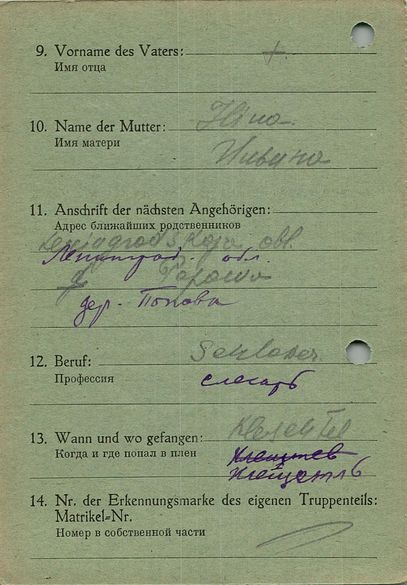 9. Vorname des Vaters: +
Имя отца
10. Name der Mutter:
Имя матери
11. Anschrift der nächsten Angehörigen:
Адрес ближайших родственников
obl.
Ленинград. обл.
дер. Попова
12. Beruf: Schlosser
Профессия слесарь
13. Wann und wo gefangen:
Когда и где попал в плен
14. Nr. der Erkennungsmarke des eigenen Truppenteils:
Matrikel=Nr.
Номер в собственной части